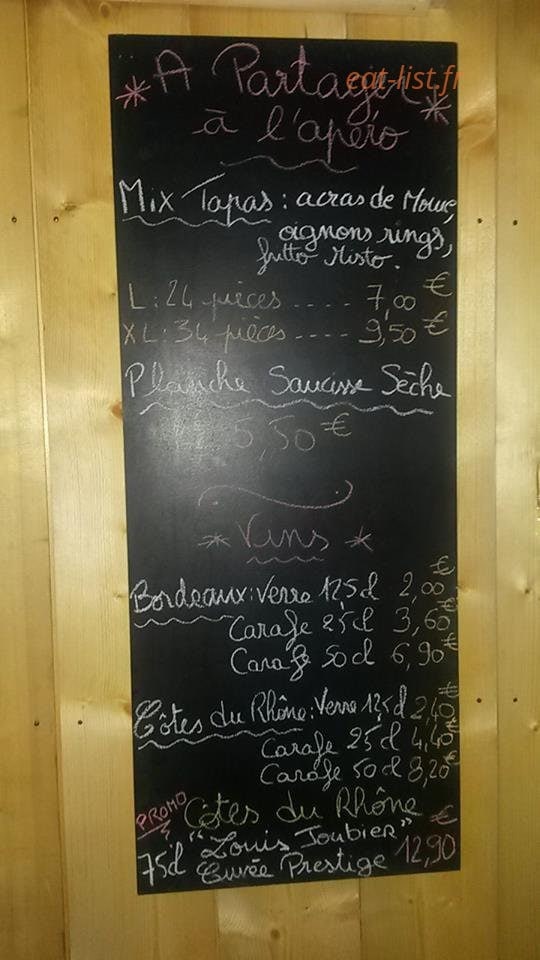 * A Partager *
eat-list.fr
à l'apéro
Mix Tapas : acras de Morue,
oignons rings,
fritto Misto.
L : 24 pièces .... 7,00 €
XL : 34 pièces .... 9,50 €
Planche Saucisse Sèche
5,50 €
* Vins *
Bordeaux : Verre 12,5cl 2,00 €
Carafe 25cl 3,60 €
Carafe 50cl 6,90 €
Côtes du Rhône : Verre 12,5cl 2,40 €
Carafe 25cl 4,40 €
Carafe 50cl 8,20 €
PROMO Côtes du Rhône
"Louis Joubier" 12,90 €
75cl Cuvée Prestige